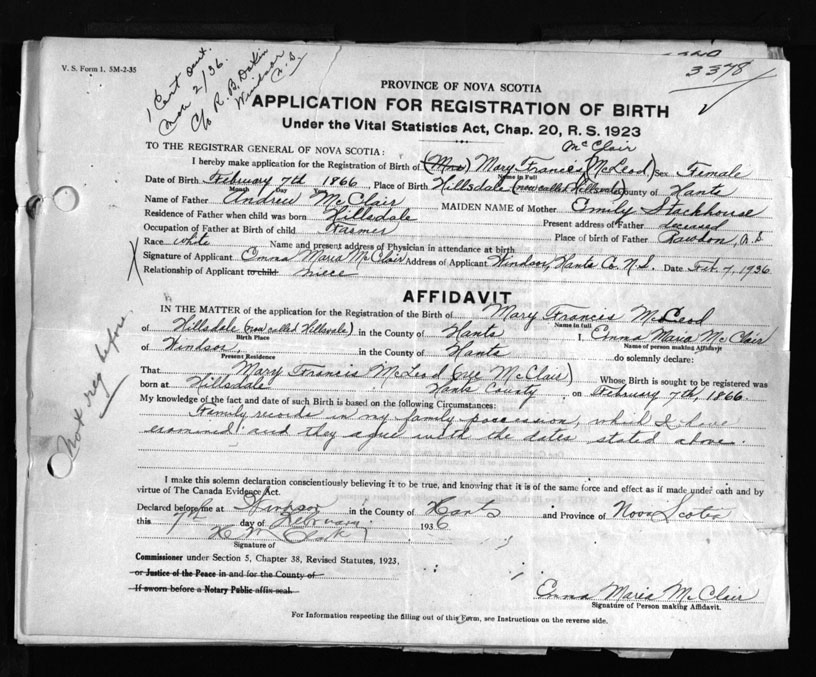 V. S. Form 1. 5M-2-35
1 Cert sent.
Mar 2/36.
C/o R. B. Dakin
Windsor
N.S.
3378
PROVINCE OF NOVA SCOTIA
APPLICATION FOR REGISTRATION OF BIRTH
Under the Vital Statistics Act, Chap. 20, R. S. 1923
TO THE REGISTRAR GENERAL OF NOVA SCOTIA:
McClair
I hereby make application for the Registration of Birth of (Mrs) Mary Francis (McLeod) Sex Female
Name in Full
Date of Birth February 7th 1866, Place of Birth Hillsdale (now called Hillsvale) County of Hants
Month Day Year
Name of Father Andrew McClair MAIDEN NAME of Mother Emily Stackhouse
Residence of Father when child was born Hillsdale Present address of Father deceased
Occupation of Father at Birth of child Farmer Place of birth of Father Rawdon, N.S.
Race white Name and present address of Physician in attendance at birth
Signature of Applicant Emma Maria McClair Address of Applicant Windsor, Hants Co. N.S. Date Feb. 7, 1936
Relationship of Applicant to child niece
Not reg before.
AFFIDAVIT
IN THE MATTER of the application for the Registration of Birth of Mary Francis McLeod
Name in full
of Hillsdale (now called Hillsvale) in the County of Hants I, Emma Maria McClair
Birth Place Name of person making Affidavit
of Windsor, in the County of Hants do solemnly declare:
Present Residence
That Mary Francis McLeod (nee McClair) Whose Birth is sought to be registered was
born at Hillsdale Hants County, on February 7th, 1866.
My knowledge of the fact and date of such Birth is based on the following Circumstances:
Family records in my family possession, which I have
examined and they agree with the dates stated above.
I make this solemn declaration conscientiously believing it to be true, and knowing that it is of the same force and effect as if made under oath and by
virtue of The Canada Evidence Act.
Declared before me at Windsor in the County of Hants and Province of Nova Scotia
this 7th day of February 1936
Signature of
Commissioner under Section 5, Chapter 38, Revised Statutes, 1923,
or Justice of the Peace in and for the County of
If sworn before a Notary Public affix seal.
Emma Maria McClair
Signature of Person making Affidavit.
For Information respecting the filling out of this Form, see Instructions on the reverse side.